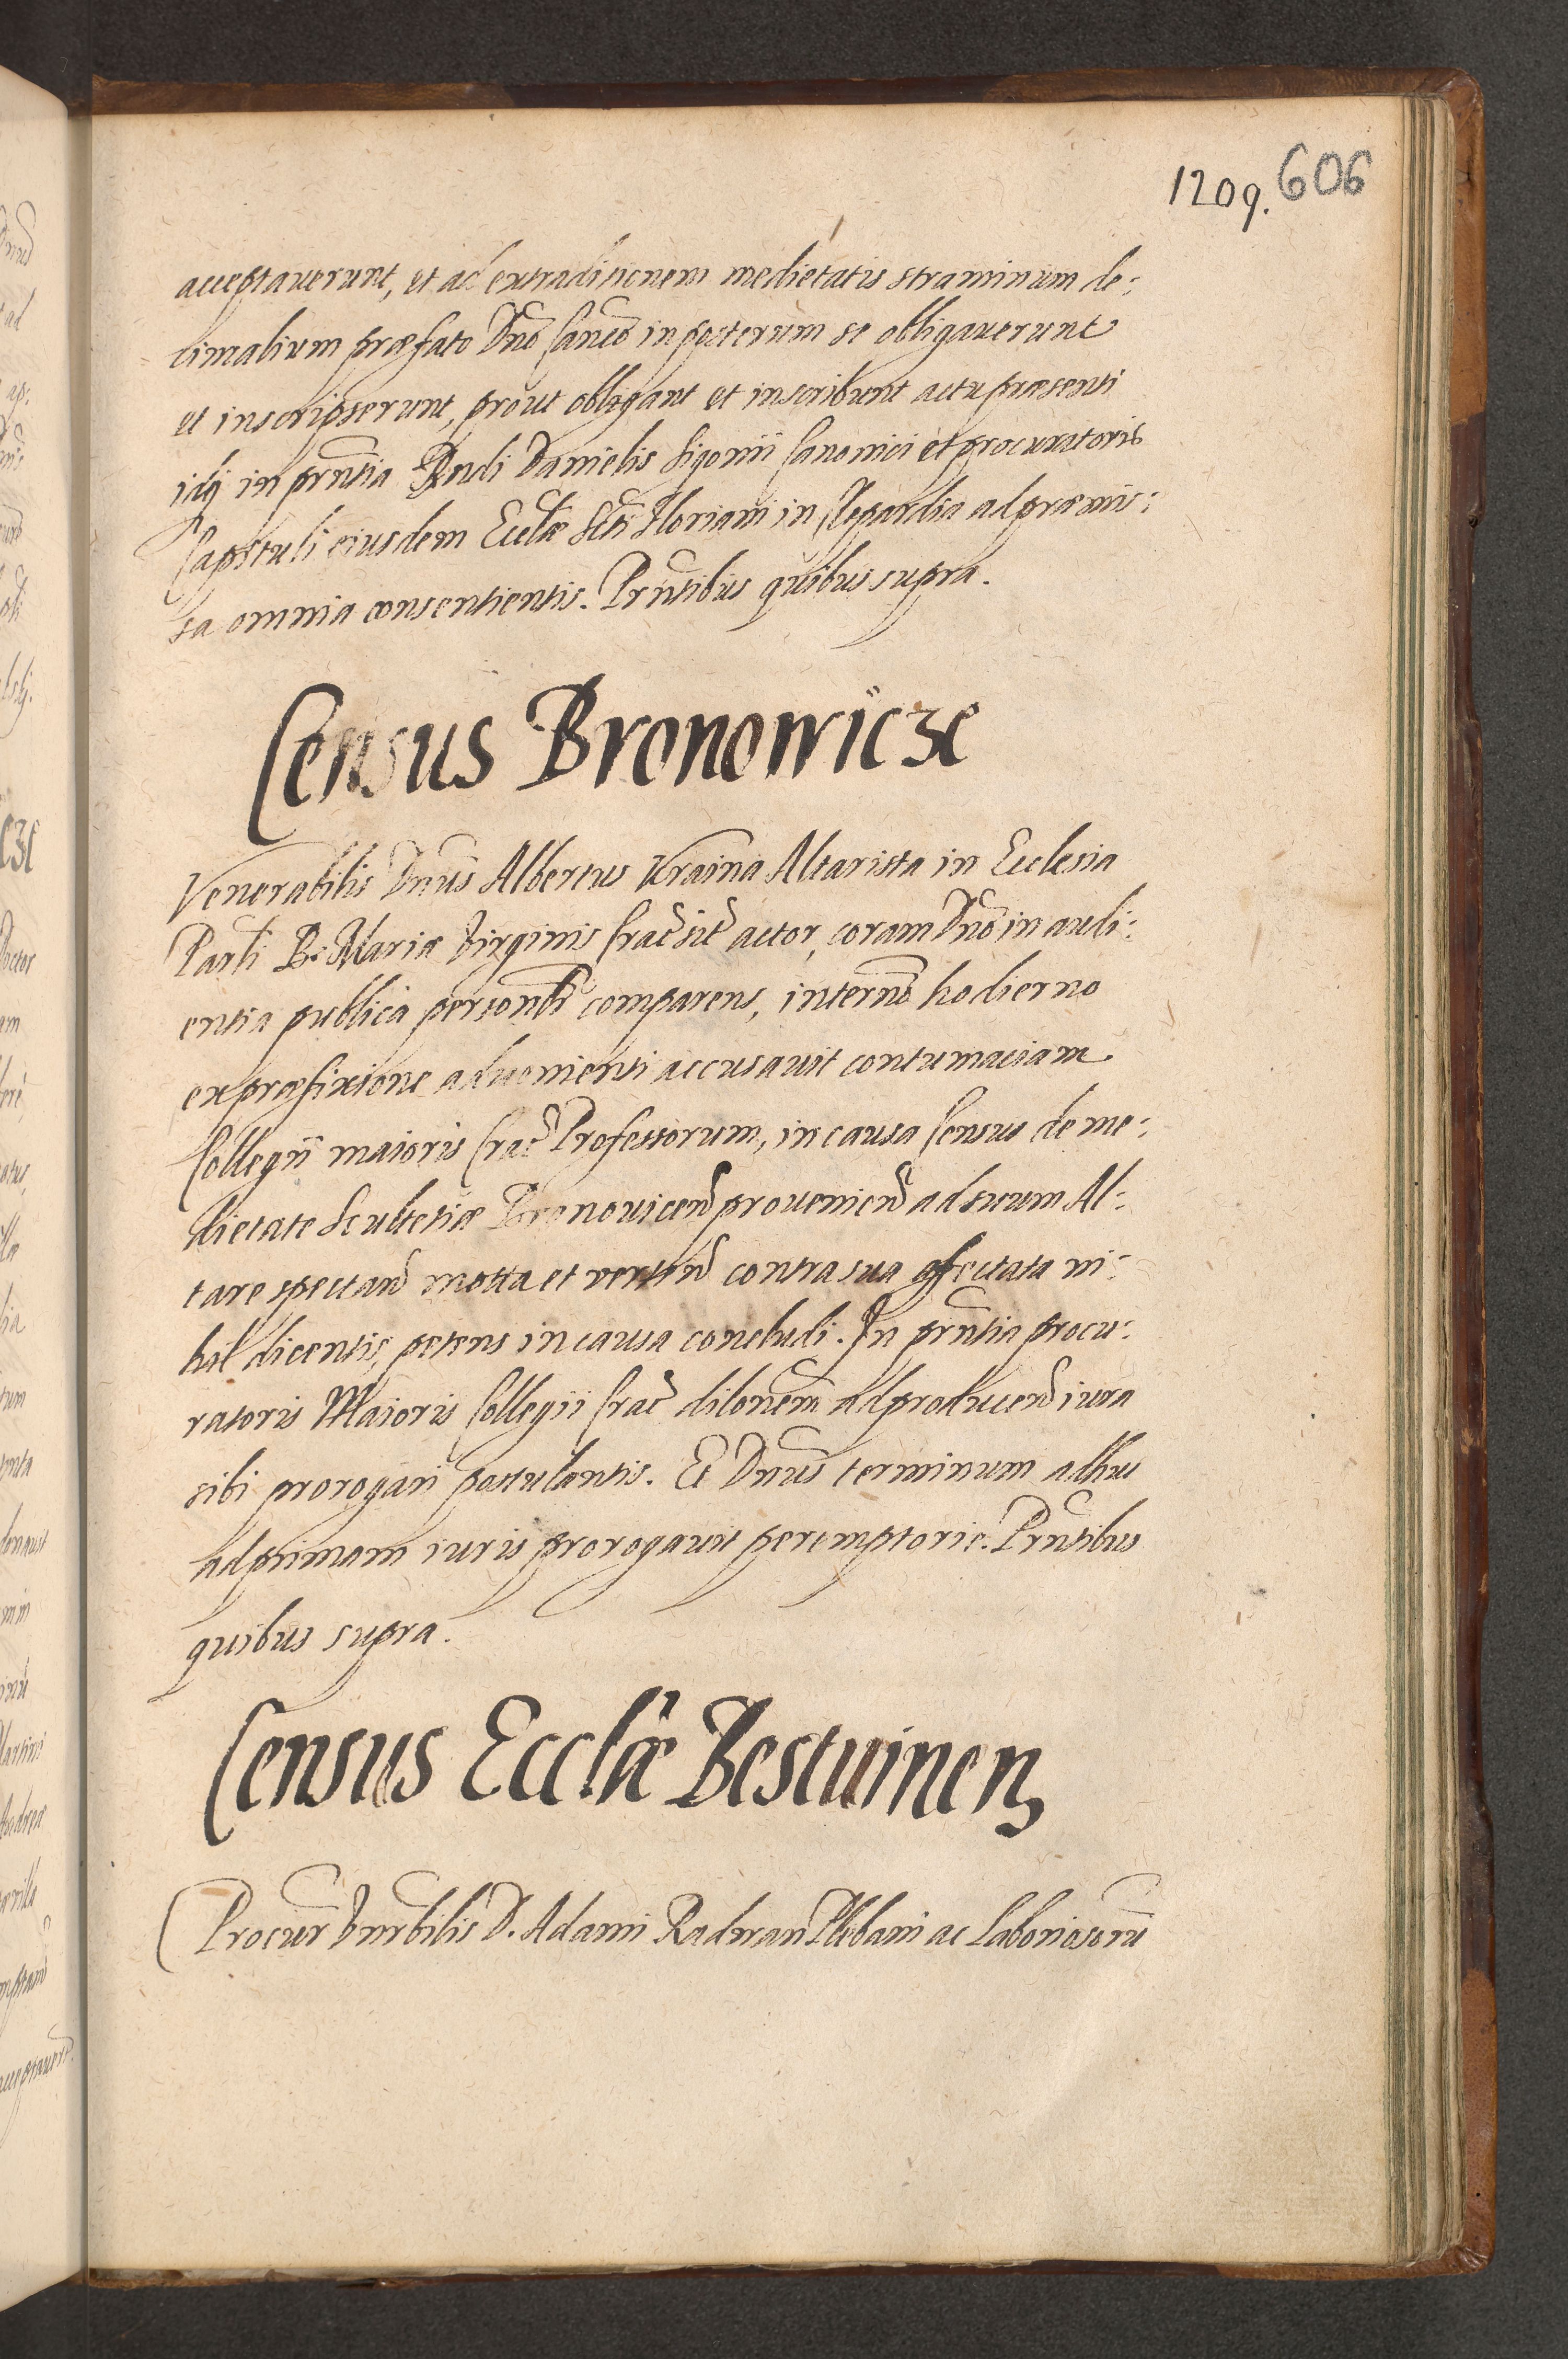 1209. 606
acceptauerunt, et ad extraditionem medietatis straminum de:
cimalium præfato Dno Canco in posterum se obligauerunt
et inscripserunt, prout obligant et inscribunt actu præsenti
idq in prntia Rndi Danielis Sigonii Canonici et procuratoris
Capituli eiusdem Ecclæ Scti Floriani in Clepardia ad præmis:
sa omnia consentientis. Prntibus quibus supra.
Census Bronowicze
Venerabilis Dnus Albertus Vkraina Altarista in Ecclesia
Parli B. Mariæ Virginis Crac sit actor, coram Dno in audi:
entia publica personlr comparens, in termno hodierno
ex præfixione aduenienti accusauit contumaciam
Collegii maioris Crac Professorum, in causa Census de me:
dietate Scultetiæ Bronouicen proueniend ad suum Al:
tare spectand motta et vertend contra sua affectata ni:
hil dicentis, petens in causa concludi. In prntia procu:
ratoris Maioris Collegii Crac dilonem ad producend iura
sibi prorogari postulantis. Et Dnus terminum adhuc
ad primam iuris prorogauit peremptorie. Prntibus
quibus supra.
Census Ecclæ Bestuinen
Procur Vnrbilis D. Adami Radwan Plebani ac Laboriosoru